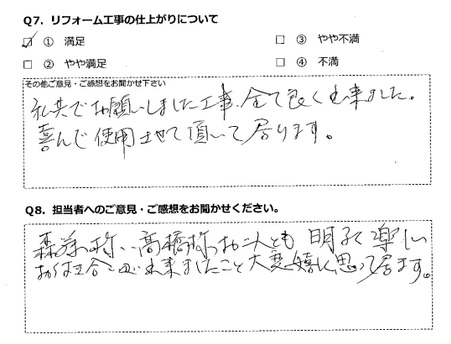 Q7. リフォーム工事の仕上がりについて
☑ ① 満足 □ ③ やや不満
□ ② やや満足 □ ④ 不満
その他ご意見・ご感想をお聞かせ下さい
私共でお願いしました工事、全て良く出来ました。
喜んで使用させて頂いて居ります。
Q8. 担当者へのご意見・ご感想をお聞かせください。
高橋様お二人とも 明るく楽しい
出来ましたこと大変嬉しく思って居ます。